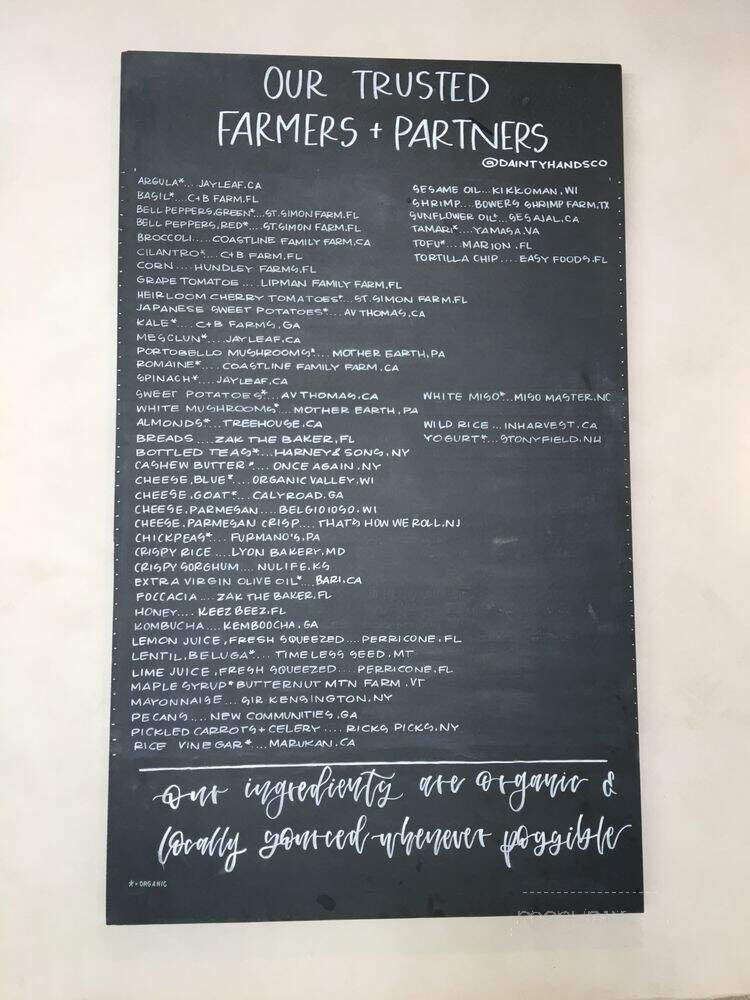 OUR TRUSTED
FARMERS + PARTNERS
@DAINTYHANDSCO
ARGULA*... JAYLEAF.CA
BASIL*... C+B FARM.FL
BELL PEPPERS,GREEN*....ST.SIMON FARM.FL
BELL PEPPERS,RED*....ST.SIMON FARM.FL
BROCCOLI.... COASTLINE FAMILY FARM,CA
CILANTRO*... C+B FARM,FL
CORN.... HUNDLEY FARMS,FL
GRAPE TOMATOE .... LIPMAN FAMILY FARM,FL
HEIRLOOM CHERRY TOMATOES*... ST.SIMON FARM,FL
JAPANESE SWEET POTATOES*... AV THOMAS,CA
KALE*... C+B FARMS,GA
MESCLUN*... JAYLEAF,CA
PORTOBELLO MUSHROOMS*... MOTHER EARTH,PA
ROMAINE*.... COASTLINE FAMILY FARM,CA
SPINACH*.... JAYLEAF,CA
SWEET POTATOES*... AV THOMAS,CA
WHITE MUSHROOMS*... MOTHER EARTH, PA
ALMONDS*... TREEHOUSE.CA
BREADS ....ZAK THE BAKER,FL
BOTTLED TEAS*... HARNEY & SONS, NY
CASHEW BUTTER *.... ONCE AGAIN .NY
CHEESE,BLUE*.... ORGANIC VALLEY.WI
CHEESE,GOAT*... CALYROAD.GA
CHEESE,PARMESAN .... BELGIOIOSO.WI
CHEESE,PARMESAN CRISP.... THAT'S HOW WE ROLL,NJ
CHICKPEAS*... FURMANO'S,PA
CRISPY RICE .... LYON BAKERY.MD
CRISPY SORGHUM.... NULIFE.KS
EXTRA VIRGIN OLIVE OIL*... BARI.CA
FOCCACIA.... ZAK THE BAKER.FL
HONEY.... KEEZ BEEZ.FL
KOMBUCHA.... KEMBOOCHA.GA
LEMON JUICE,FRESH SQUEEZED ....PERRICONE.FL
LENTIL,BELUGA*... TIMELESS SEED,MT
LIME JUICE,FRESH SQUEEZED.... PERRICONE.FL
MAPLE SYRUP*BUTTERNUT MTN FARM .VT
MAYONNAISE .... SIR KENSINGTON,NY
PECANS .... NEW COMMUNITIES,GA
PICKLED CARROTS + CELERY .... RICKS PICKS,NY
RICE VINEGAR*... MARUKAN.CA
SESAME OIL...KIKKOMAN,WI
SHRIMP....BOWERS SHRIMP FARM.TX
SUNFLOWER OIL*...SESAJAL.CA
TAMARI*....YAMASA.VA
TOFU*.... MARION .FL
TORTILLA CHIP .... EASY FOODS.FL
WHITE MISO*...MISO MASTER.NC
WILD RICE ... INHARVEST.CA
YOGURT*... STONYFIELD.NH
our ingredients are organic &
locally sourced whenever possible
*= ORGANIC